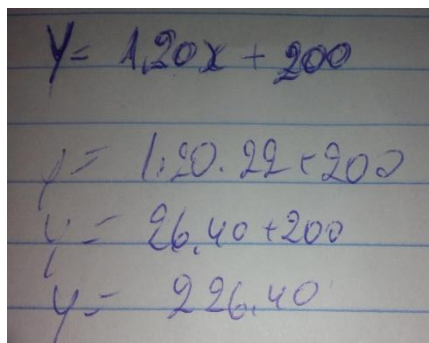 y= 1,20x + 200
y= 1,20.22+200
y= 26,40+200
y= 226,40